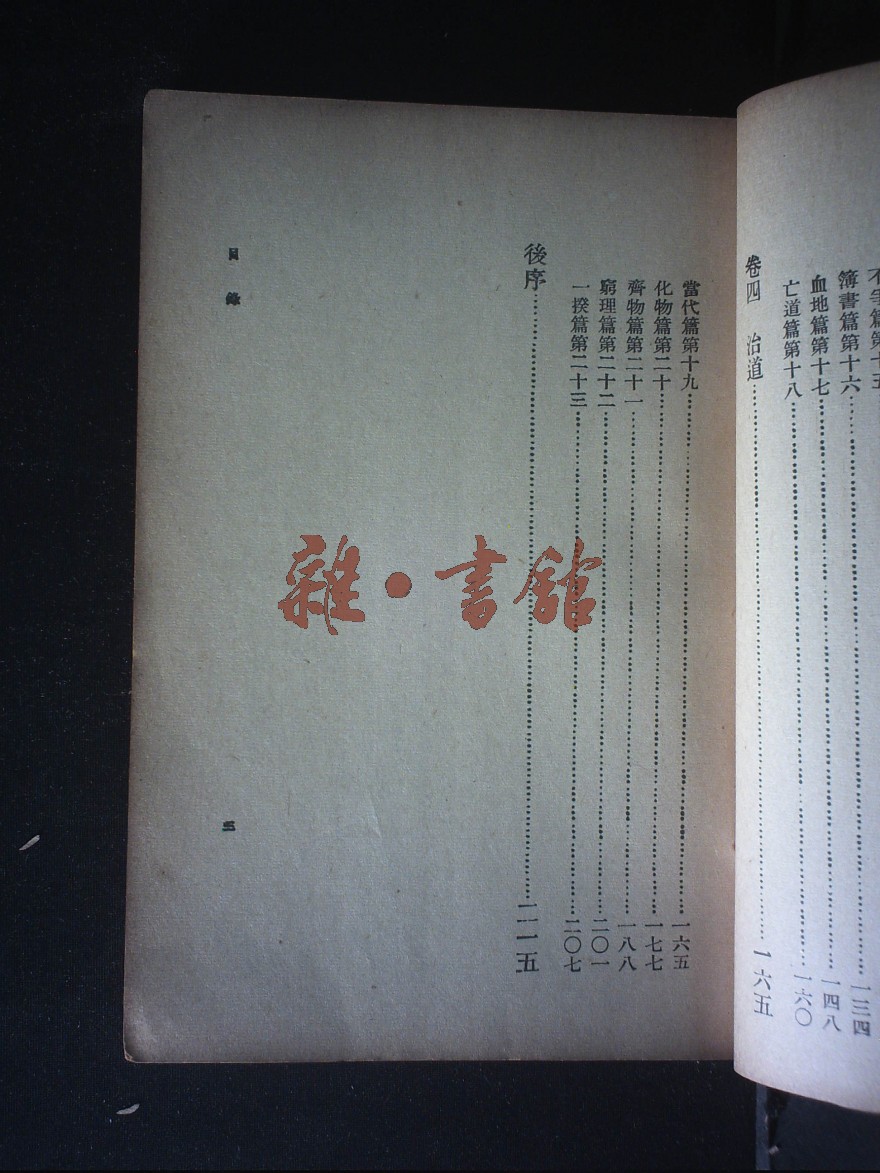 簿書篇第十六……一三四
血地篇第十七……一四八
亡道篇第十八……一六〇
卷四　治道……一六五
當代篇第十九……一六五
化物篇第二十……一七七
齊物篇第二十一……一八八
窮理篇第二十二……二〇一
一揆篇第二十三……二〇七
後序……二一五
目錄
三
雜·書館